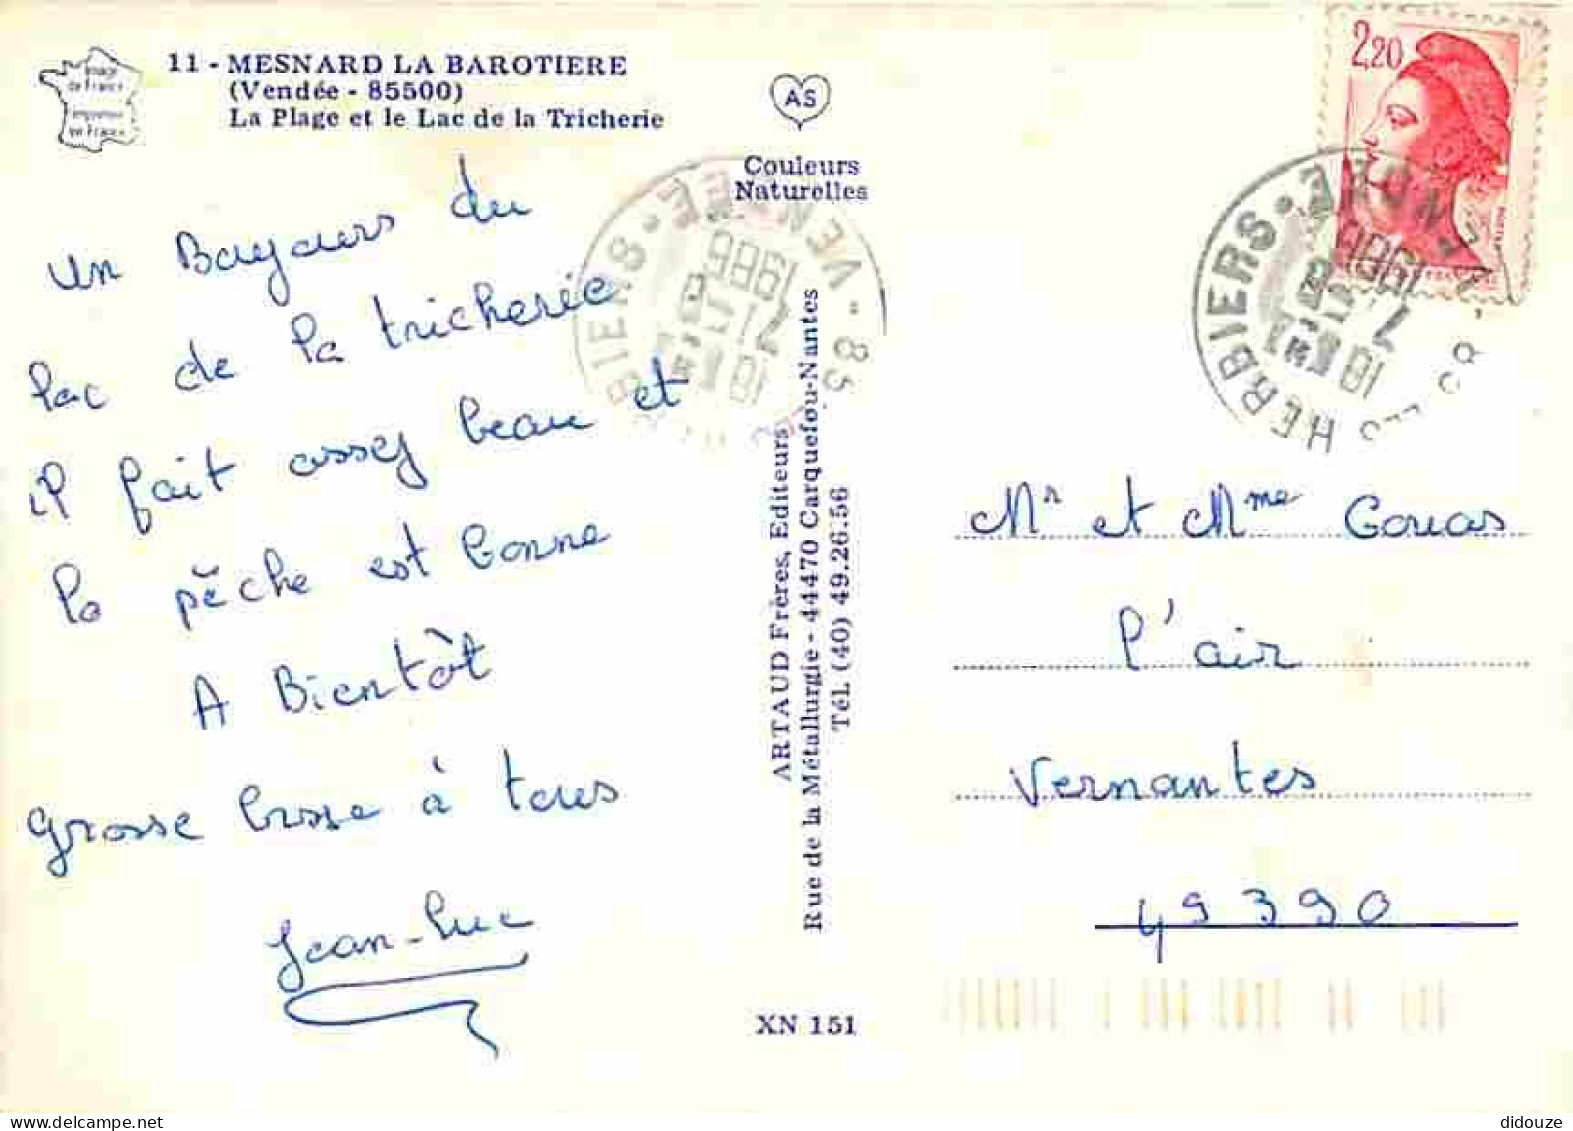 11 - MESNARD LA BAROTIERE
(Vendée - 85500)
La Plage et le Lac de la Tricherie
Image
de France
Imprimerie
en France
AS
Couleurs
Naturelles
un Bayours du
lac de la tricherie
il fait assez beau et
la pêche est bonne
A Bientôt
grosse bisse à tous
Jean-Luc
ARTAUD Frères, Editeurs
Rue de la Métallurgie - 44470 Carquefou-Nantes
Tél. (40) 49.26.56
XN 151
2,20
HERBIERS • VENDEE
18 H
7 - 8
1986
85
HERBIERS •
18 H
7 - 8
1986
Mr et Mme Gouas
l'air
Vernantes
49390
didouze